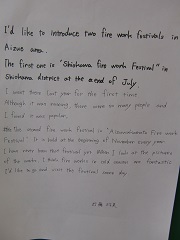 I'd like to introduce two fire work festivals in
Aizue area.
The first one is "Shiohama fire work Festival" in
Shiohama district at the end of July.
I went there last year for the first time.
Although it was raining, there were so many people and
I found it was popular.
The second fire work festival is
It is held at the beginning of November every year.
I have never been that festival yet. When I look at the pictures
of the works, I think fire works in cold season are fantastic.
I'd like to go and visit the festival some day.